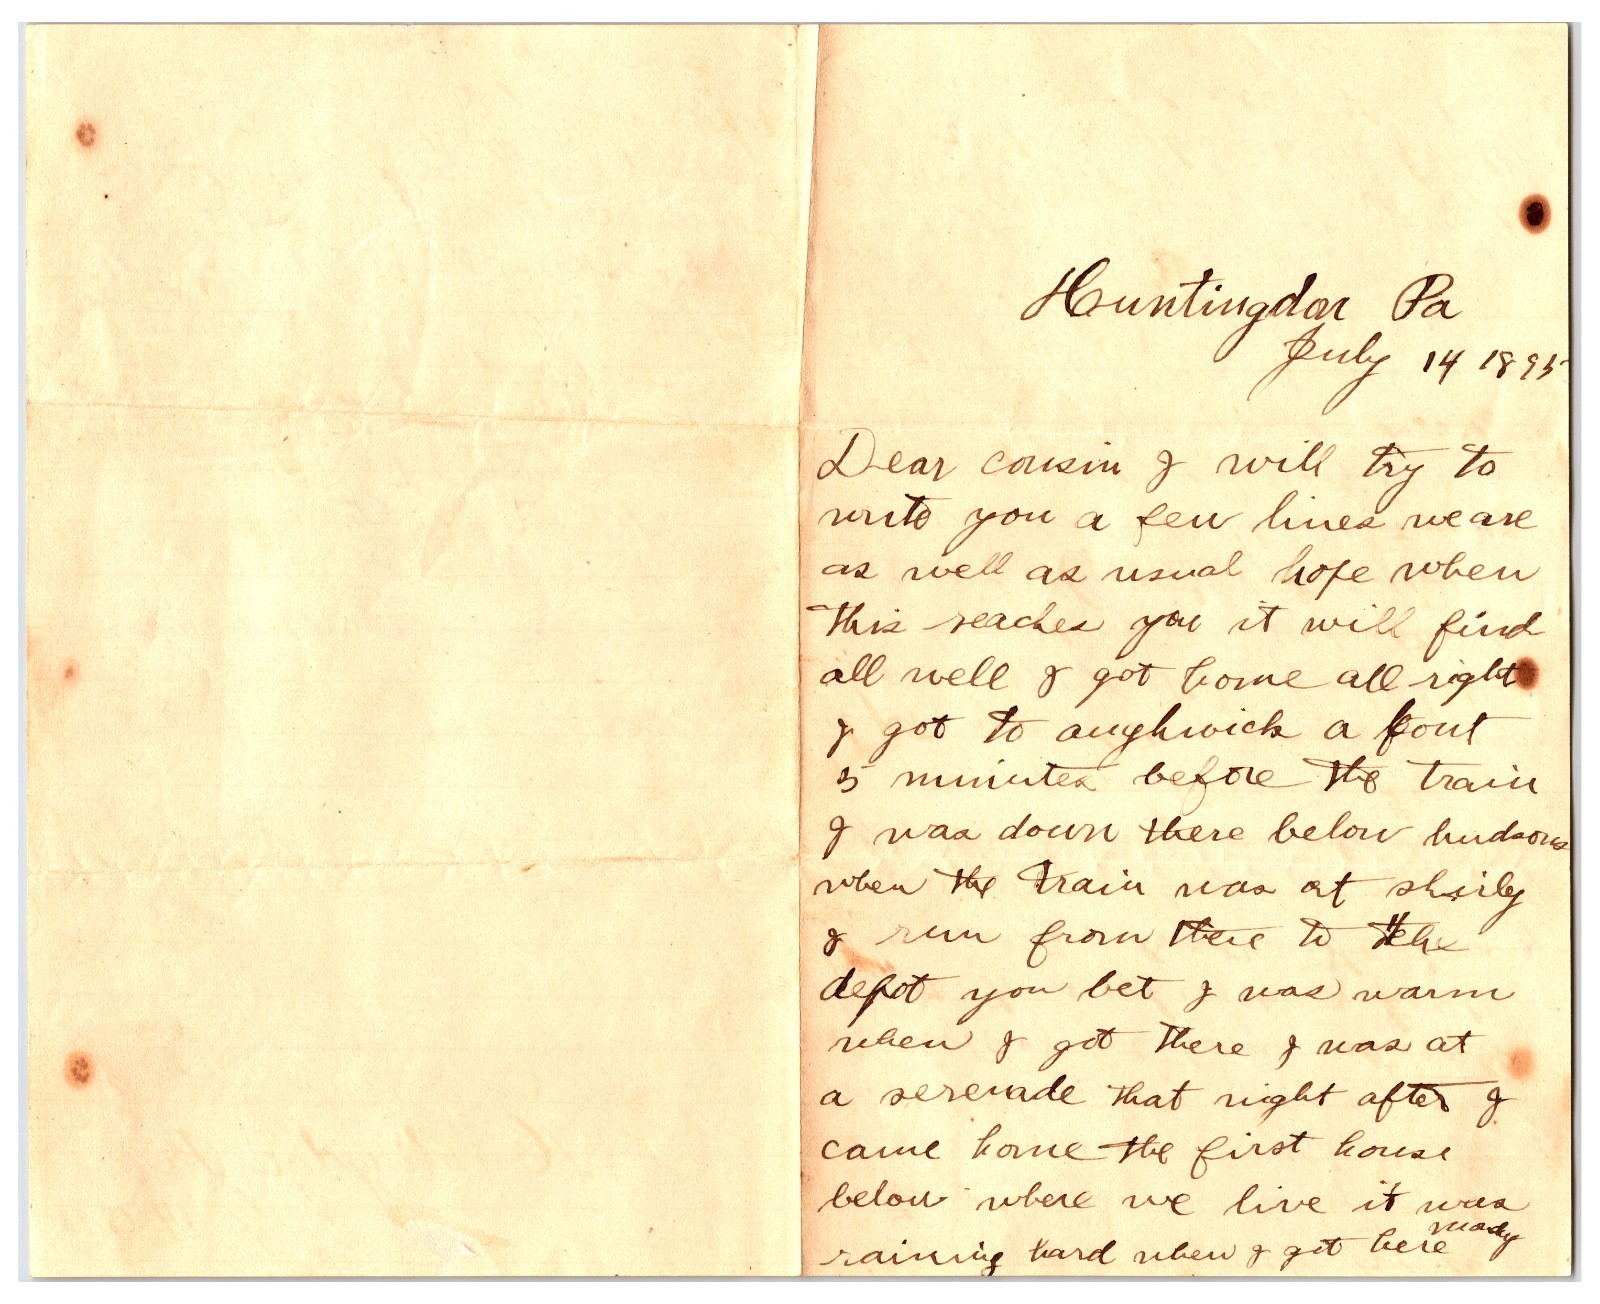 Huntingdon Pa
July 14 1895
Dear cousin I will try to
write you a few lines we are
as well as usual hope when
this reaches you it will find
all well I got home all right
I got to aughwick a bout
5 minutes before the train
I was down there below hudsons
when the train was at shirly
I run from there to the
depot you bet I was warm
when I got there I was at
a serenade that night after I
came home the first house
below where we live it was
raining hard when I got here